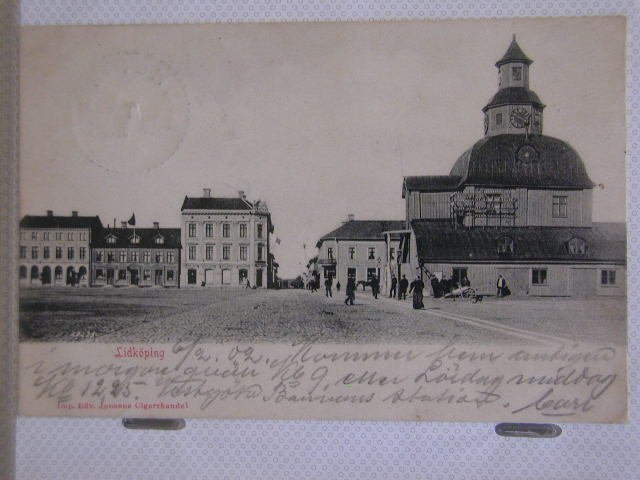 Lidköping 6/2. 02. Kommer hem antigen
i morgon qväll Kl 9, eller Lördag middag
Kl 12,25. Vestgöta Banans station. Carl
Imp. Edv. Jonsons Cigarrhandel